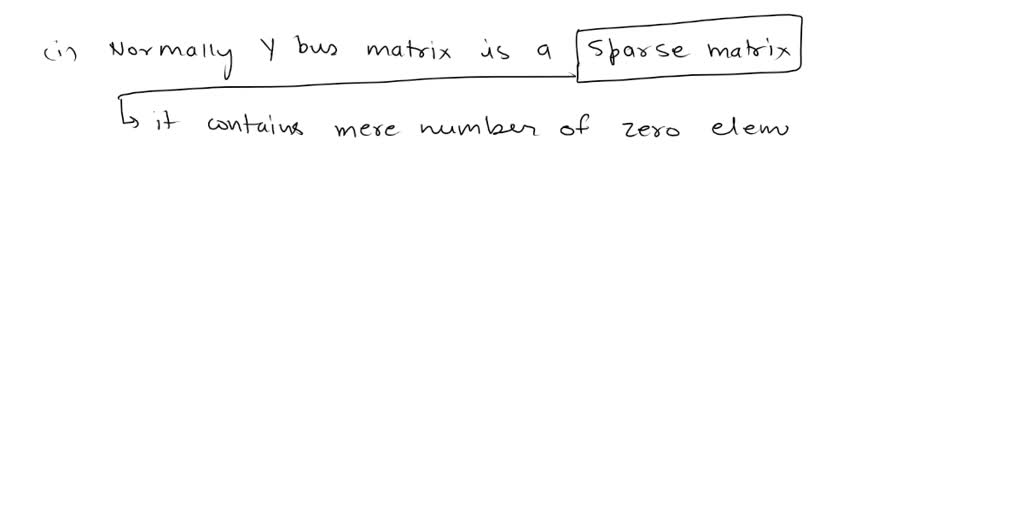 (i) Normally Y bus matrix is a sparse matrix
it contains mere number of zero elem